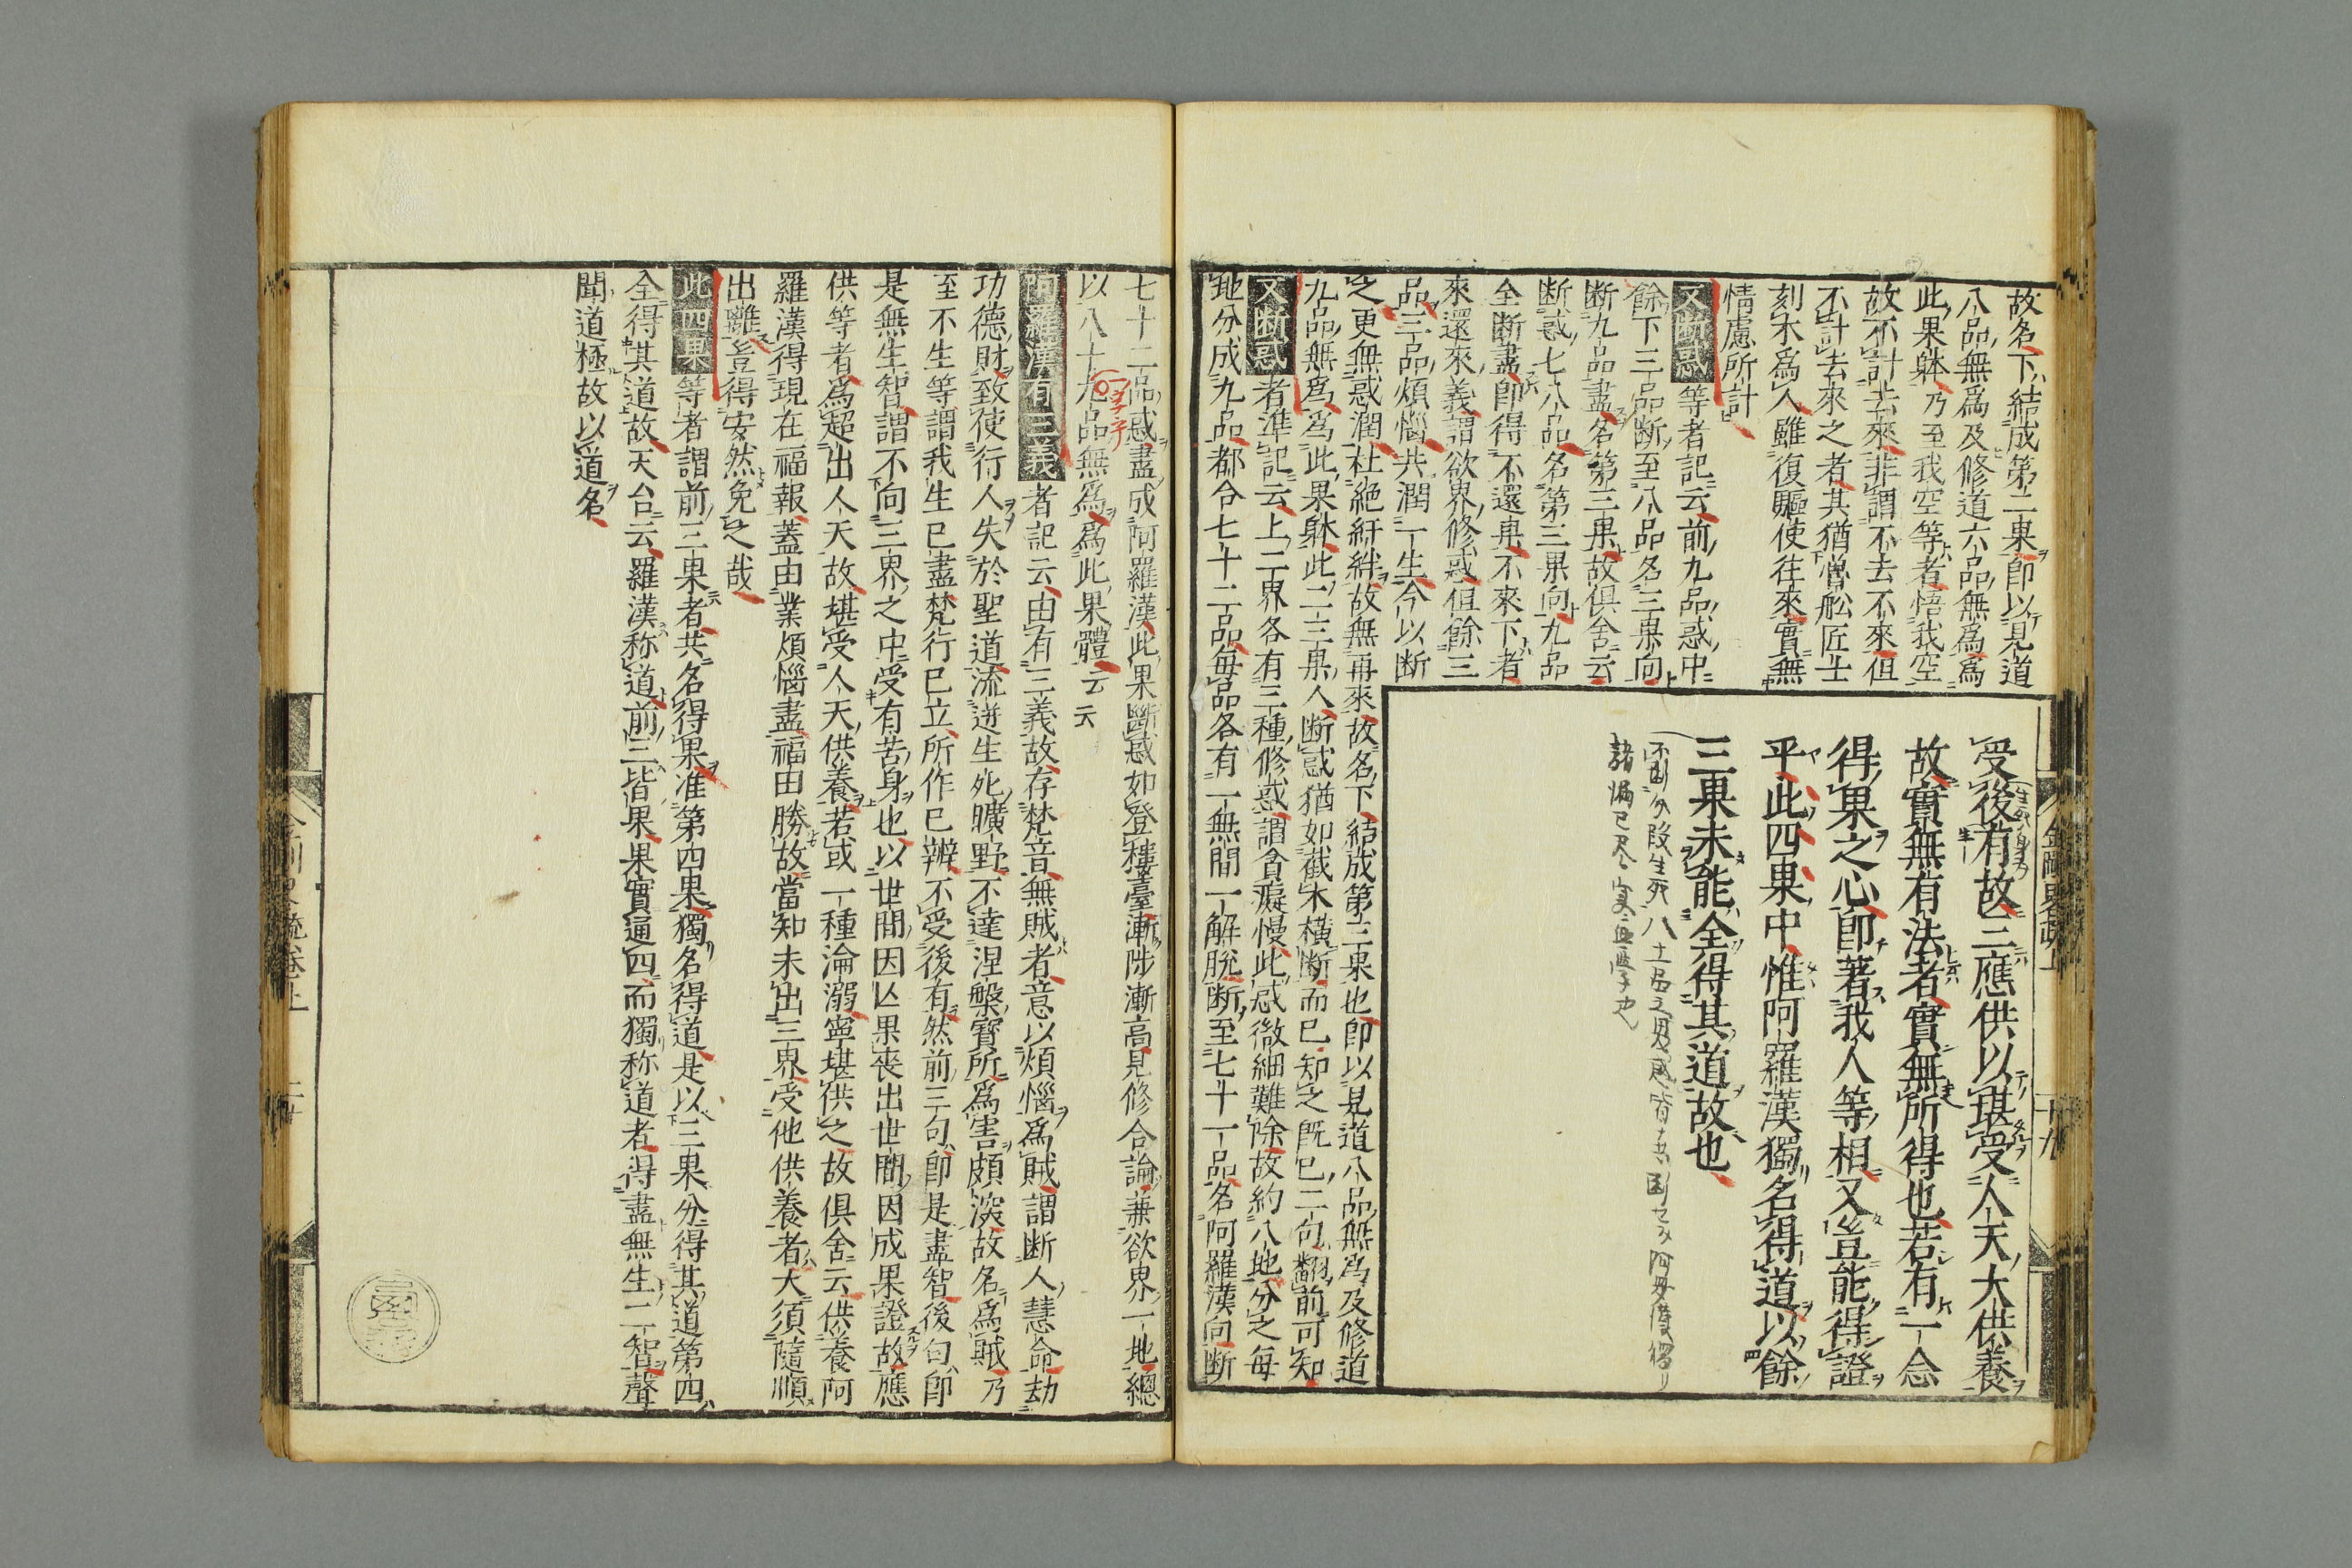 受後有故三應供以堪受人天大供養
故實無有法者實無所得也若有一念
得果之心卽著我人等相又豈能得證
乎此四果中惟阿羅漢獨名得道以餘
三果未能全得其道故也
故名下結成第二果卽以見道
八品無爲及修道六品無爲爲
此果躰乃至我空等者悟我空
故不計去來非謂不去不來但
不計去來之者其猶魯舩匠士
刻木爲人雖復驅使往來實無
情慮所計
又断惑等者記云前九品惑中
餘下三品断至八品名三果向
断九品盡名第三果故俱舍云
断惑七八品名第三果向九品
全断盡卽得不還果不來下者
來還來義謂欲界修惑但餘三
品三品煩惱共潤一生今以断
之更無惑潤杜絶紆絆故無再來故名下結成第三果也卽以見道八品無爲及修道
九品無爲爲此果躰此二三果人断惑猶如截木橫断而已知之既已二句翻前可知
又断惑者準記云上二界各有三種修惑謂貪癡慢此惑微細難除故約八地分之每
地分成九品都合七十二品每品各有一無間一解脫断至七十一品名阿羅漢向断
七十二品惑盡成阿羅漢此果斷惑如登樓臺漸陟漸高見修合論兼欲界一地總
以八十九品無爲爲此果體云云
阿羅漢有三義者記云由有三義故存梵音無賊者意以煩惱爲賊謂断人慧命劫
功德財致使行人失於聖道流迸生死曠野不達涅槃寳所爲害頗深故名爲賊乃
至不生等謂我生已盡梵行已立所作已辦不受後有然前三句卽是盡智後句卽
是無生智謂不向三界之中受有苦身也以世間因亾果喪出世間因成果證故應
供等者爲超出人天故堪受人天供養若或一種淪溺寧堪供之故俱舍云供養阿
羅漢得現在福報蓋由業煩惱盡福田勝故當知未出三界受他供養者大須隨順
出離豈得安然免之哉
此四果等者謂前三果者共名得果准第四果獨名得道是以三果分得其道第四
全得其道故天台云羅漢称道前三皆果果實逼四而獨称道者得盡無生二智聲
聞道極故以道名